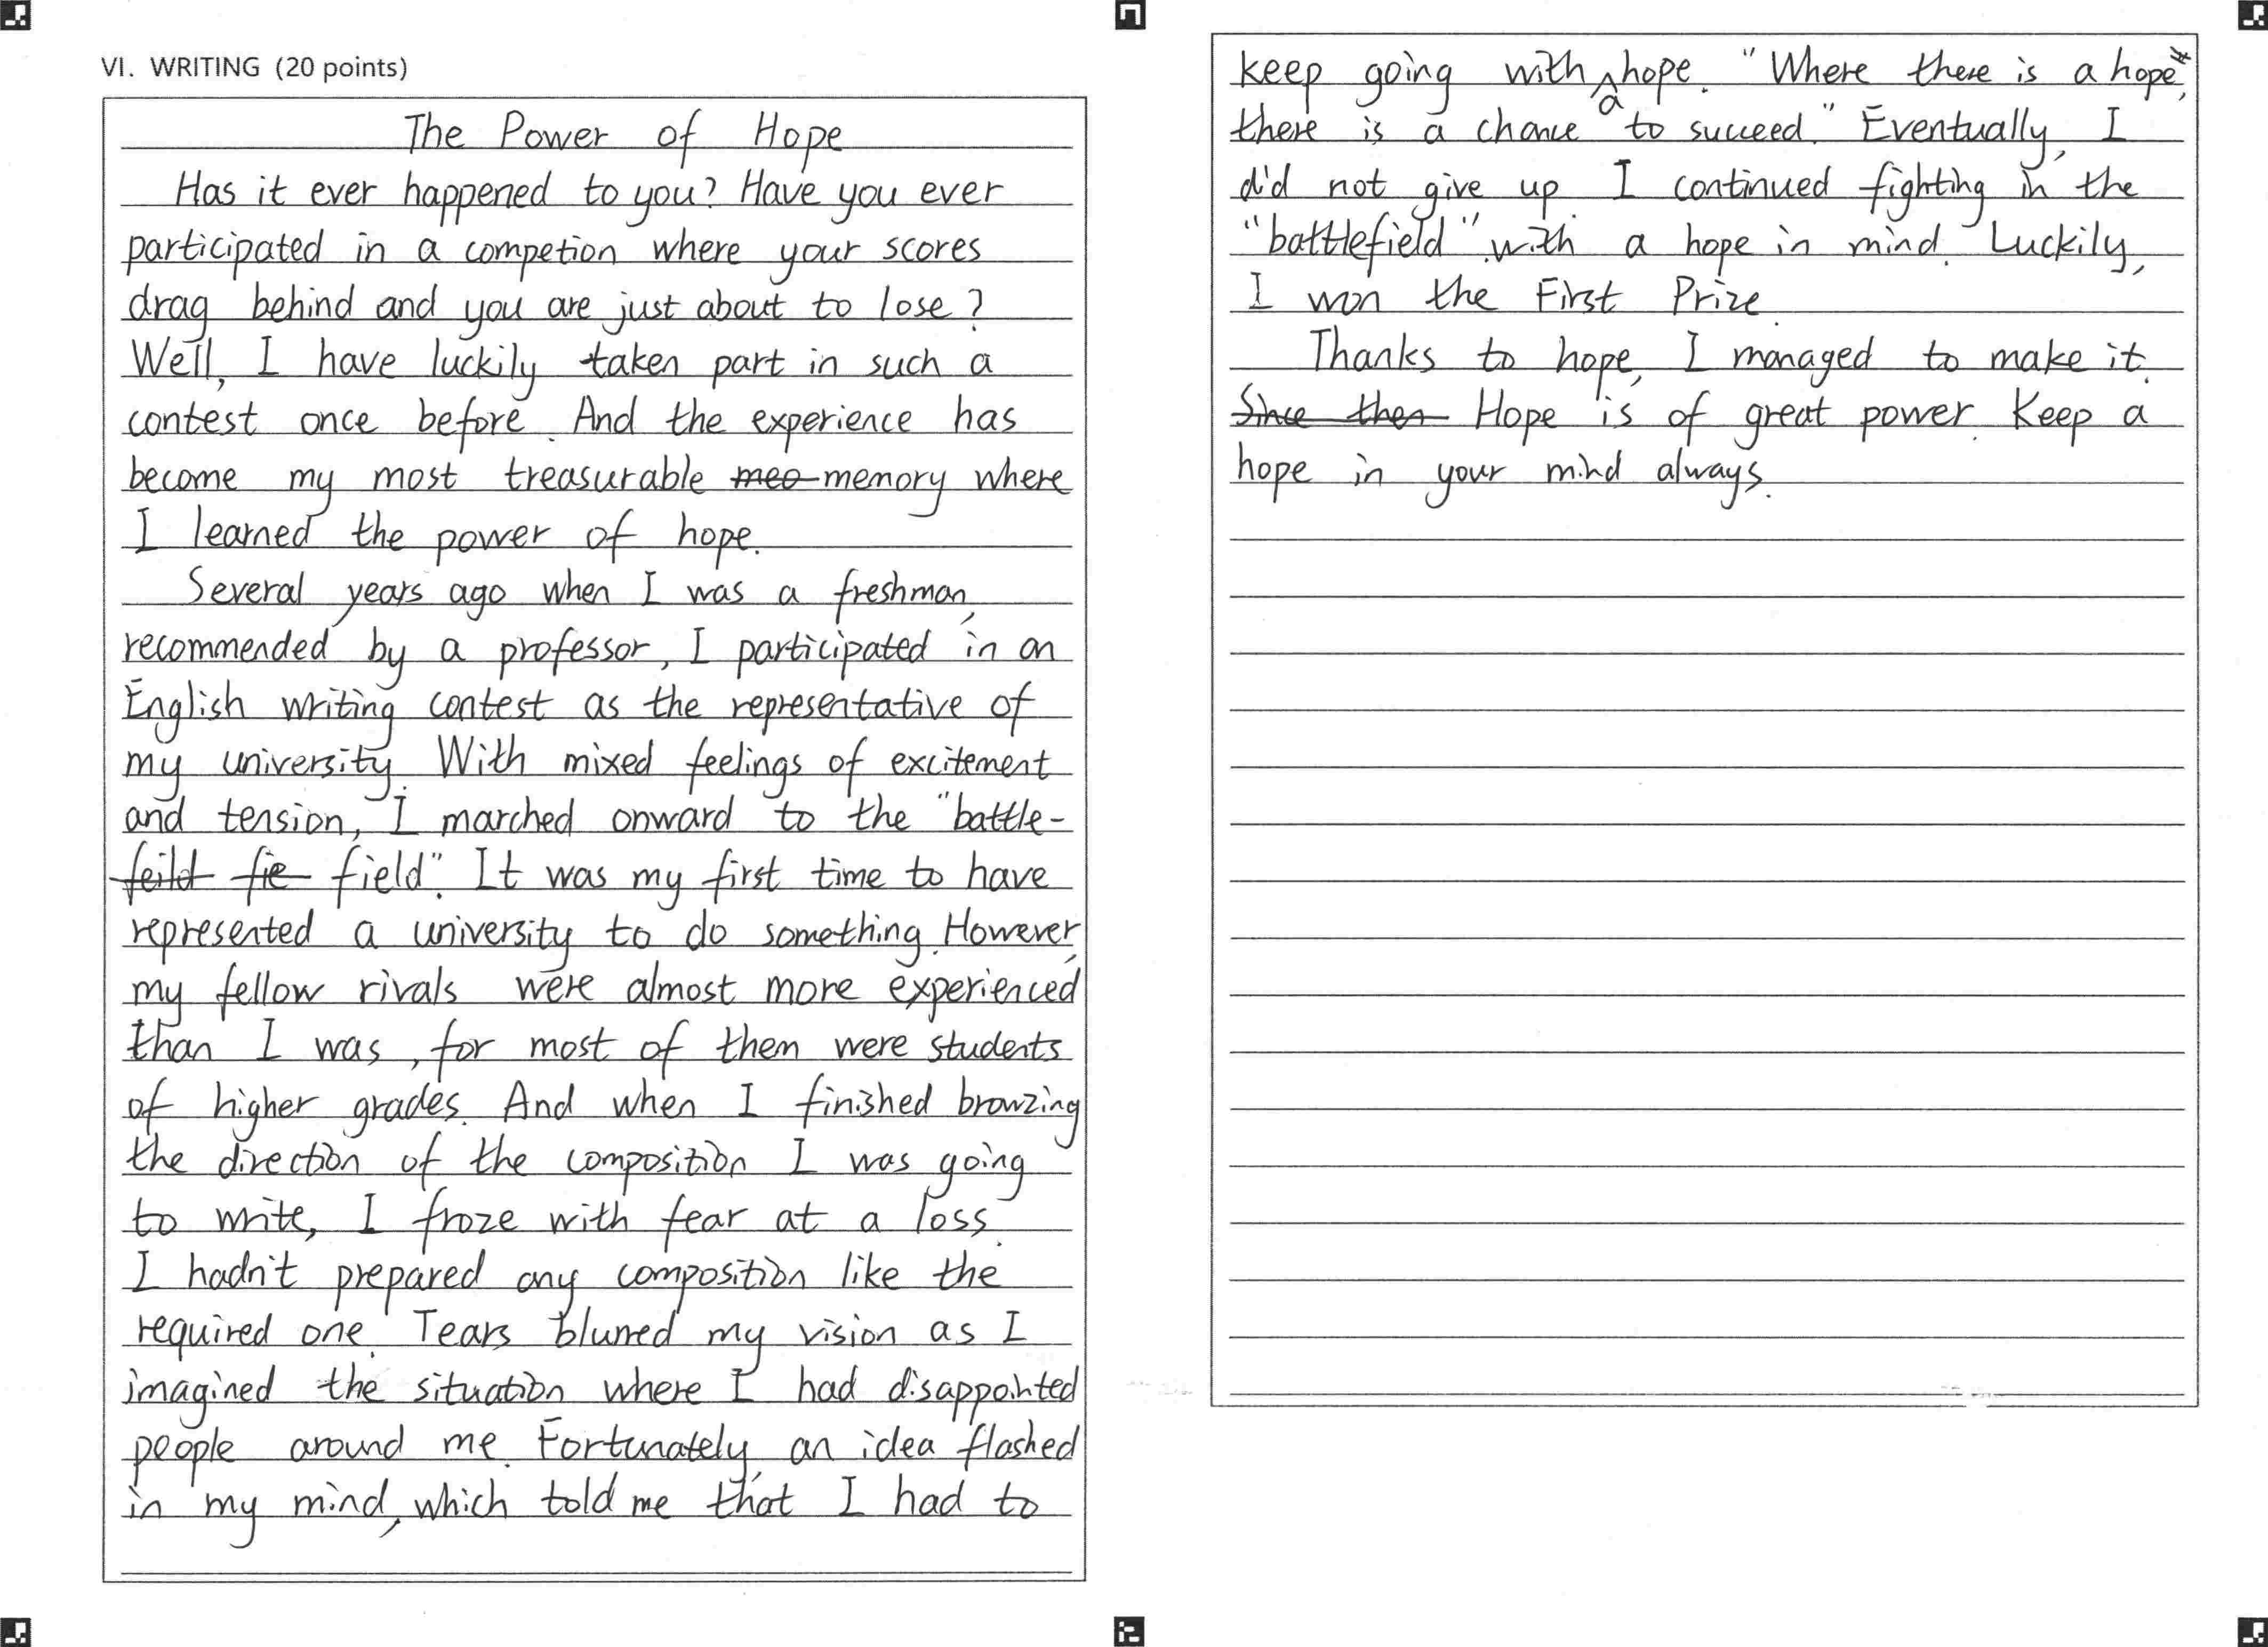 VI. WRITING (20 points)
The Power of Hope
Has it ever happened to you? Have you ever
participated in a competion where your scores
drag behind and you are just about to lose?
Well, I have luckily taken part in such a
contest once before. And the experience has
become my most treasurable meo memory where
I learned the power of hope.
Several years ago when I was a freshman,
recommended by a professor, I participated in an
English writing contest as the representative of
my university. With mixed feelings of excitement
and tension, I marched onward to the "battle-
feild fie field". It was my first time to have
represented a university to do something. However,
my fellow rivals were almost more experienced
than I was, for most of them were students
of higher grades. And when I finished browzing
the direction of the composition I was going
to write, I froze with fear at a loss.
I hadn't prepared any composition like the
required one. Tears blurred my vision as I
imagined the situation where I had disappointed
people around me. Fortunately, an idea flashed
in my mind, which told me that I had to
keep going with a hope. "Where there is a hope,
there is a chance to succeed." Eventually, I
did not give up. I continued fighting in the
"battlefield" with a hope in mind. Luckily,
I won the First Prize.
Thanks to hope, I managed to make it.
Since then Hope is of great power. Keep a
hope in your mind always.